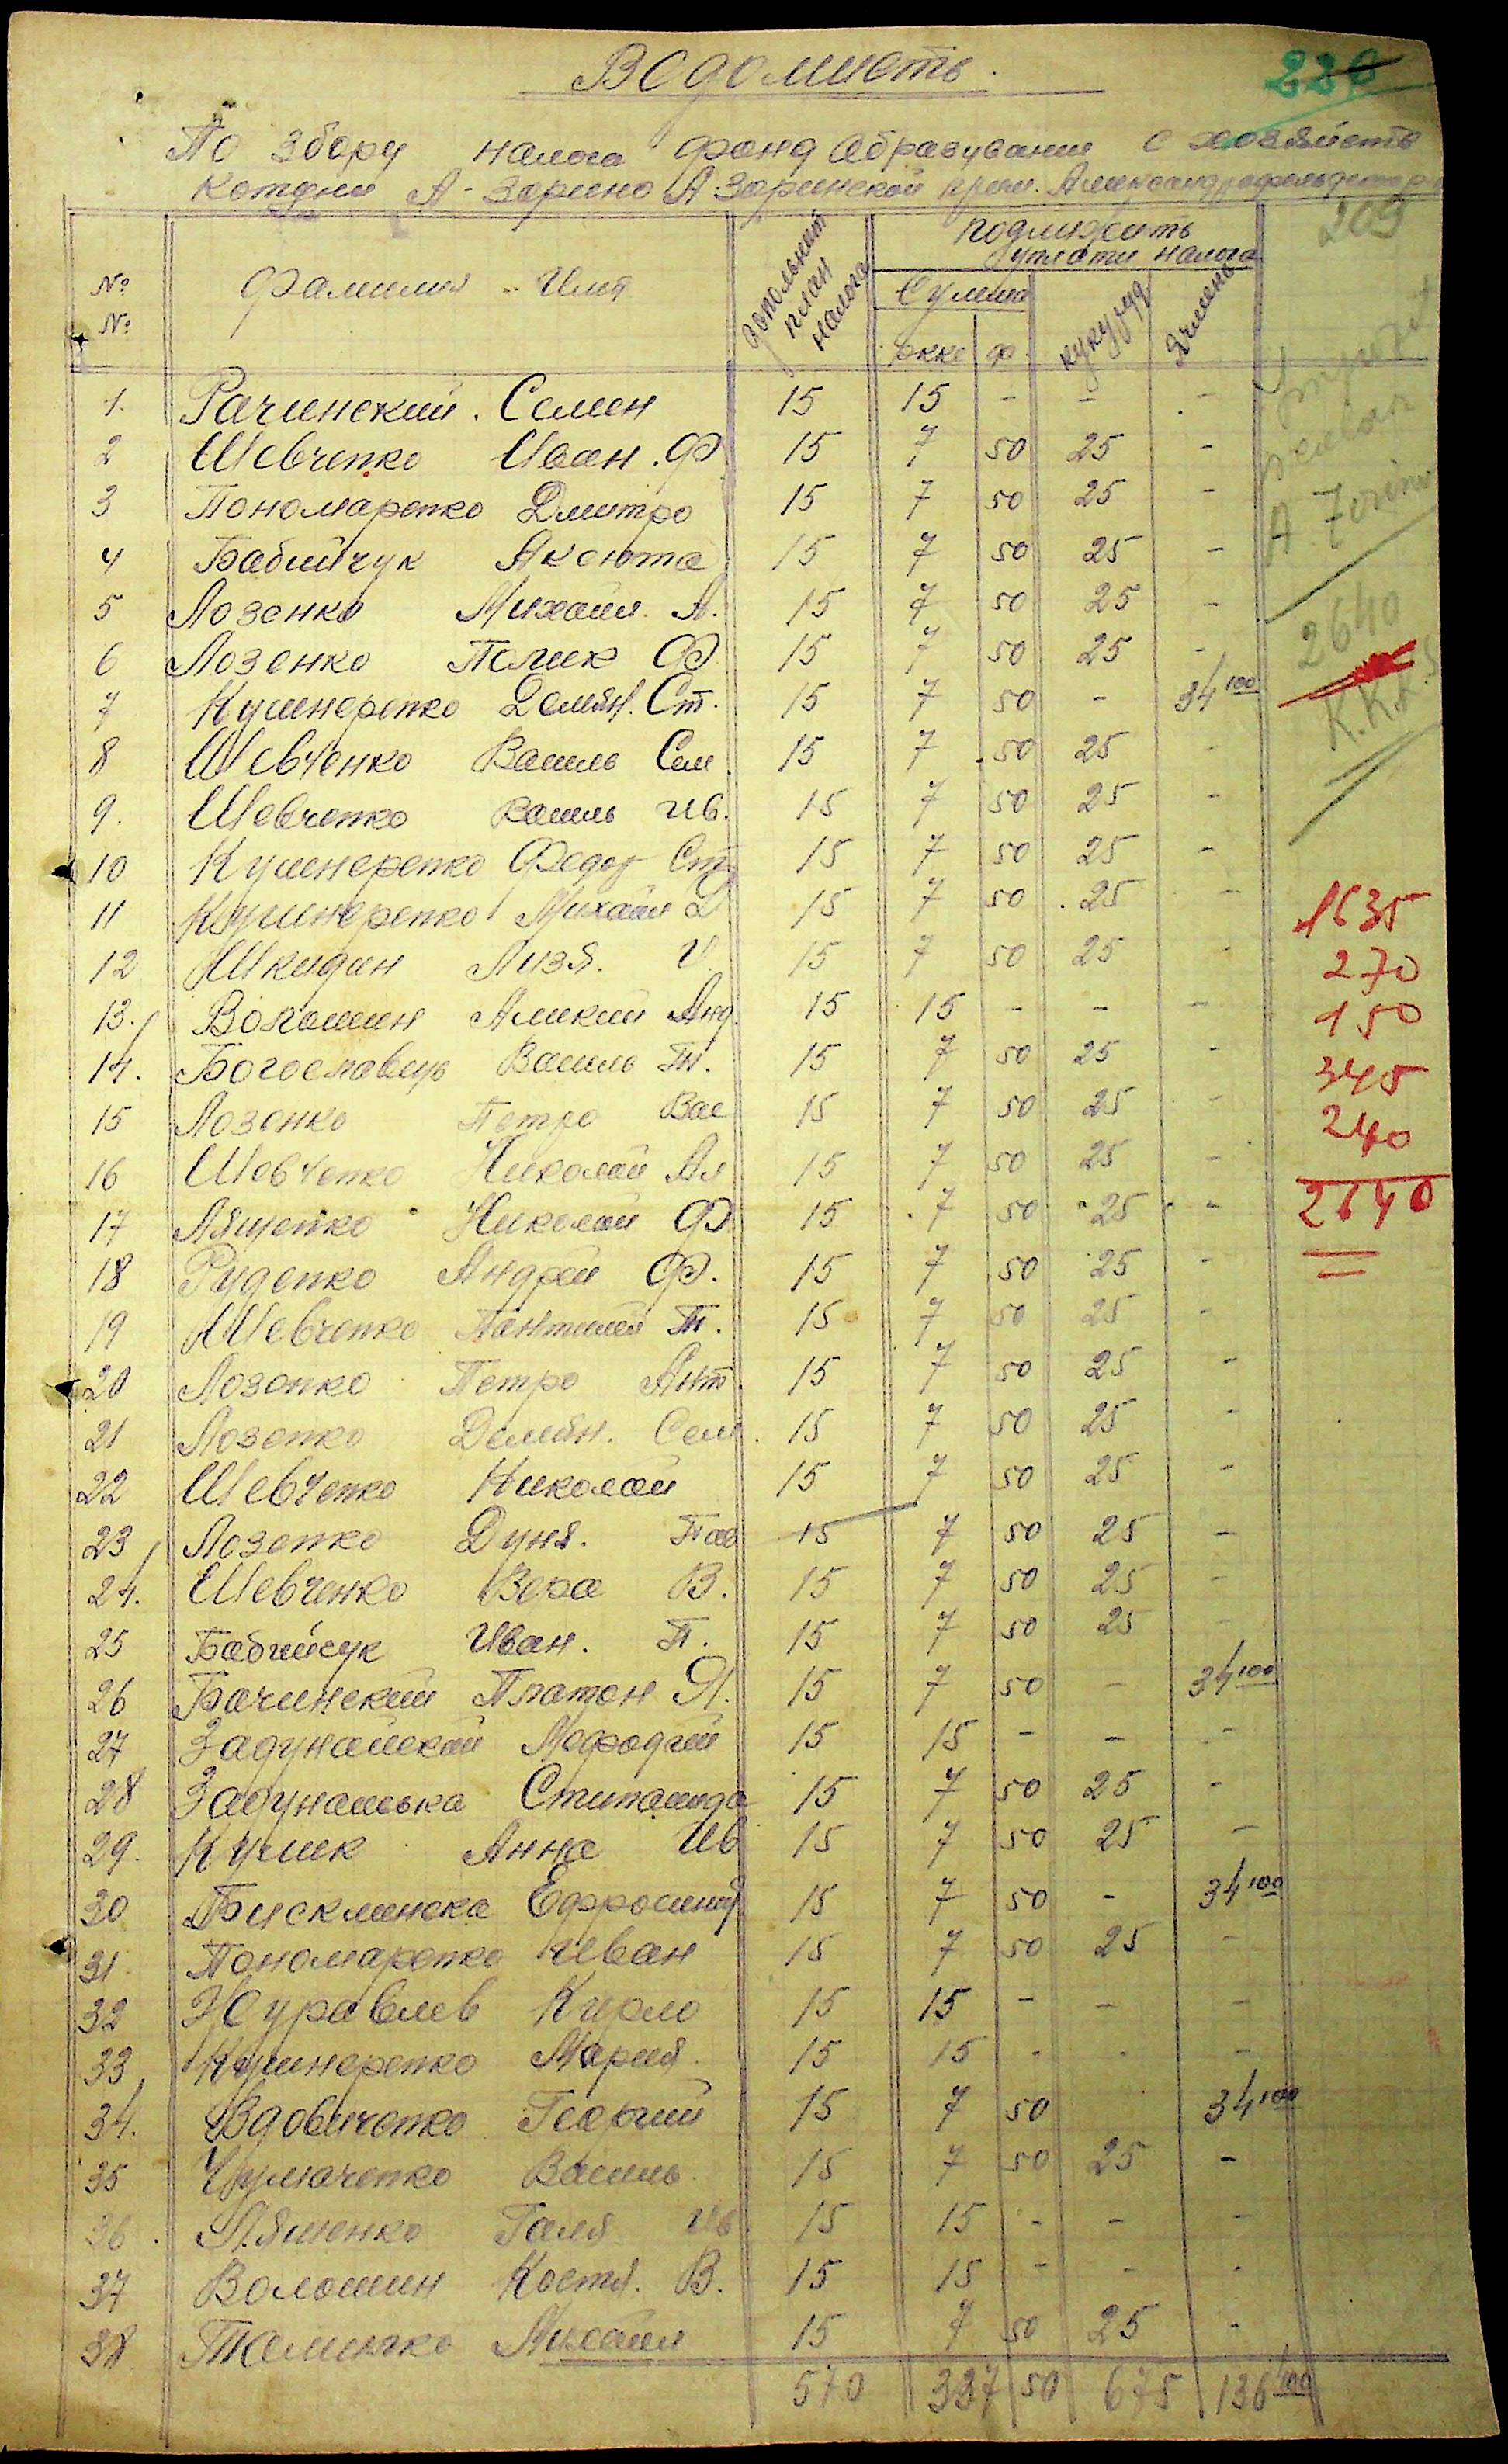 Ведомисть.
220
По збору налога фонд образувания с хозяйств
Котуни А-Зарино А Заринской прем. Александрофельдской
№ №
Фамилия - Имя
допольнит план налога
подлижить уплати налога
Сумма
рккс ф.
кукурудз
Ячмень
209
A. Zorino
2640
K.K.S
1. Рачинский. Семен 15 15 - - -
2 Шевченко Иван. Ф 15 7 50 25 -
3 Пономаренко Дмитро 15 7 50 25 -
4 Бабийчук Аксюта 15 7 50 25 -
5 Лозенко Михаил. А. 15 7 50 25 -
6 Лозенко Полик Ф 15 7 50 25 -
7 Кушнеренко Демян. Ст. 15 7 50 - 34 100
8 Шевченко Василь Сем. 15 7 50 25 -
9. Шевченко Василь Ив. 15 7 50 25 -
10 Кушнеренко Федор Ст 15 7 50 25 -
11 Кушнеренко Михаил Д 15 7 50 25 -
12 Шкидан Лизя. И 15 7 50 25 -
13. Волошин Аликий Анд. 15 15 - - -
14. Богославець Василь Т. 15 7 50 25 -
15 Лозенко Петро Вас 15 7 50 25 -
16 Шевченко Николай Ал 15 7 50 25 -
17 Лященко Николай Ф 15 7 50 25 -
18 Руденко Андрей Ф. 15 7 50 25 -
19 Шевченко Пантилей Т. 15 7 50 25 -
20 Лозенко Петро Ант. 15 7 50 25 -
21 Лозенко Демян. Сем. 15 7 50 25 -
22 Шевченко Николай 15 7 50 25 -
23 Лозенко Дуня. Пав 15 7 50 25 -
24. Шевченко Вера В. 15 7 50 25 -
25 Бабийчук Иван. П. 15 7 50 25
26 Бачинский Платон Я. 15 7 50 - 34 100
27 Задунайский Мефодий 15 15 - - -
28 Задунайська Стипанида 15 7 50 25 -
29. Кулик Анна Ив 15 7 50 25 -
30 Ефросиния 15 7 50 - 34 100
31 Пономаренко Иван 15 7 50 25 -
32 Журавлев Курло 15 15 - - -
33 Кушнеренко Мария. 15 15 - - -
34. Вдовиченко Георгий 15 7 50 34 100
35 Чумаченко Василь. 15 7 50 25 -
36. Ляшенко Галя Ив 15 15 - - -
37 Волошин Костя. В. 15 15 - - -
38 Михаил 15 7 50 25 -
570 337 50 675 136 100
1635
270
150
345
240
2640